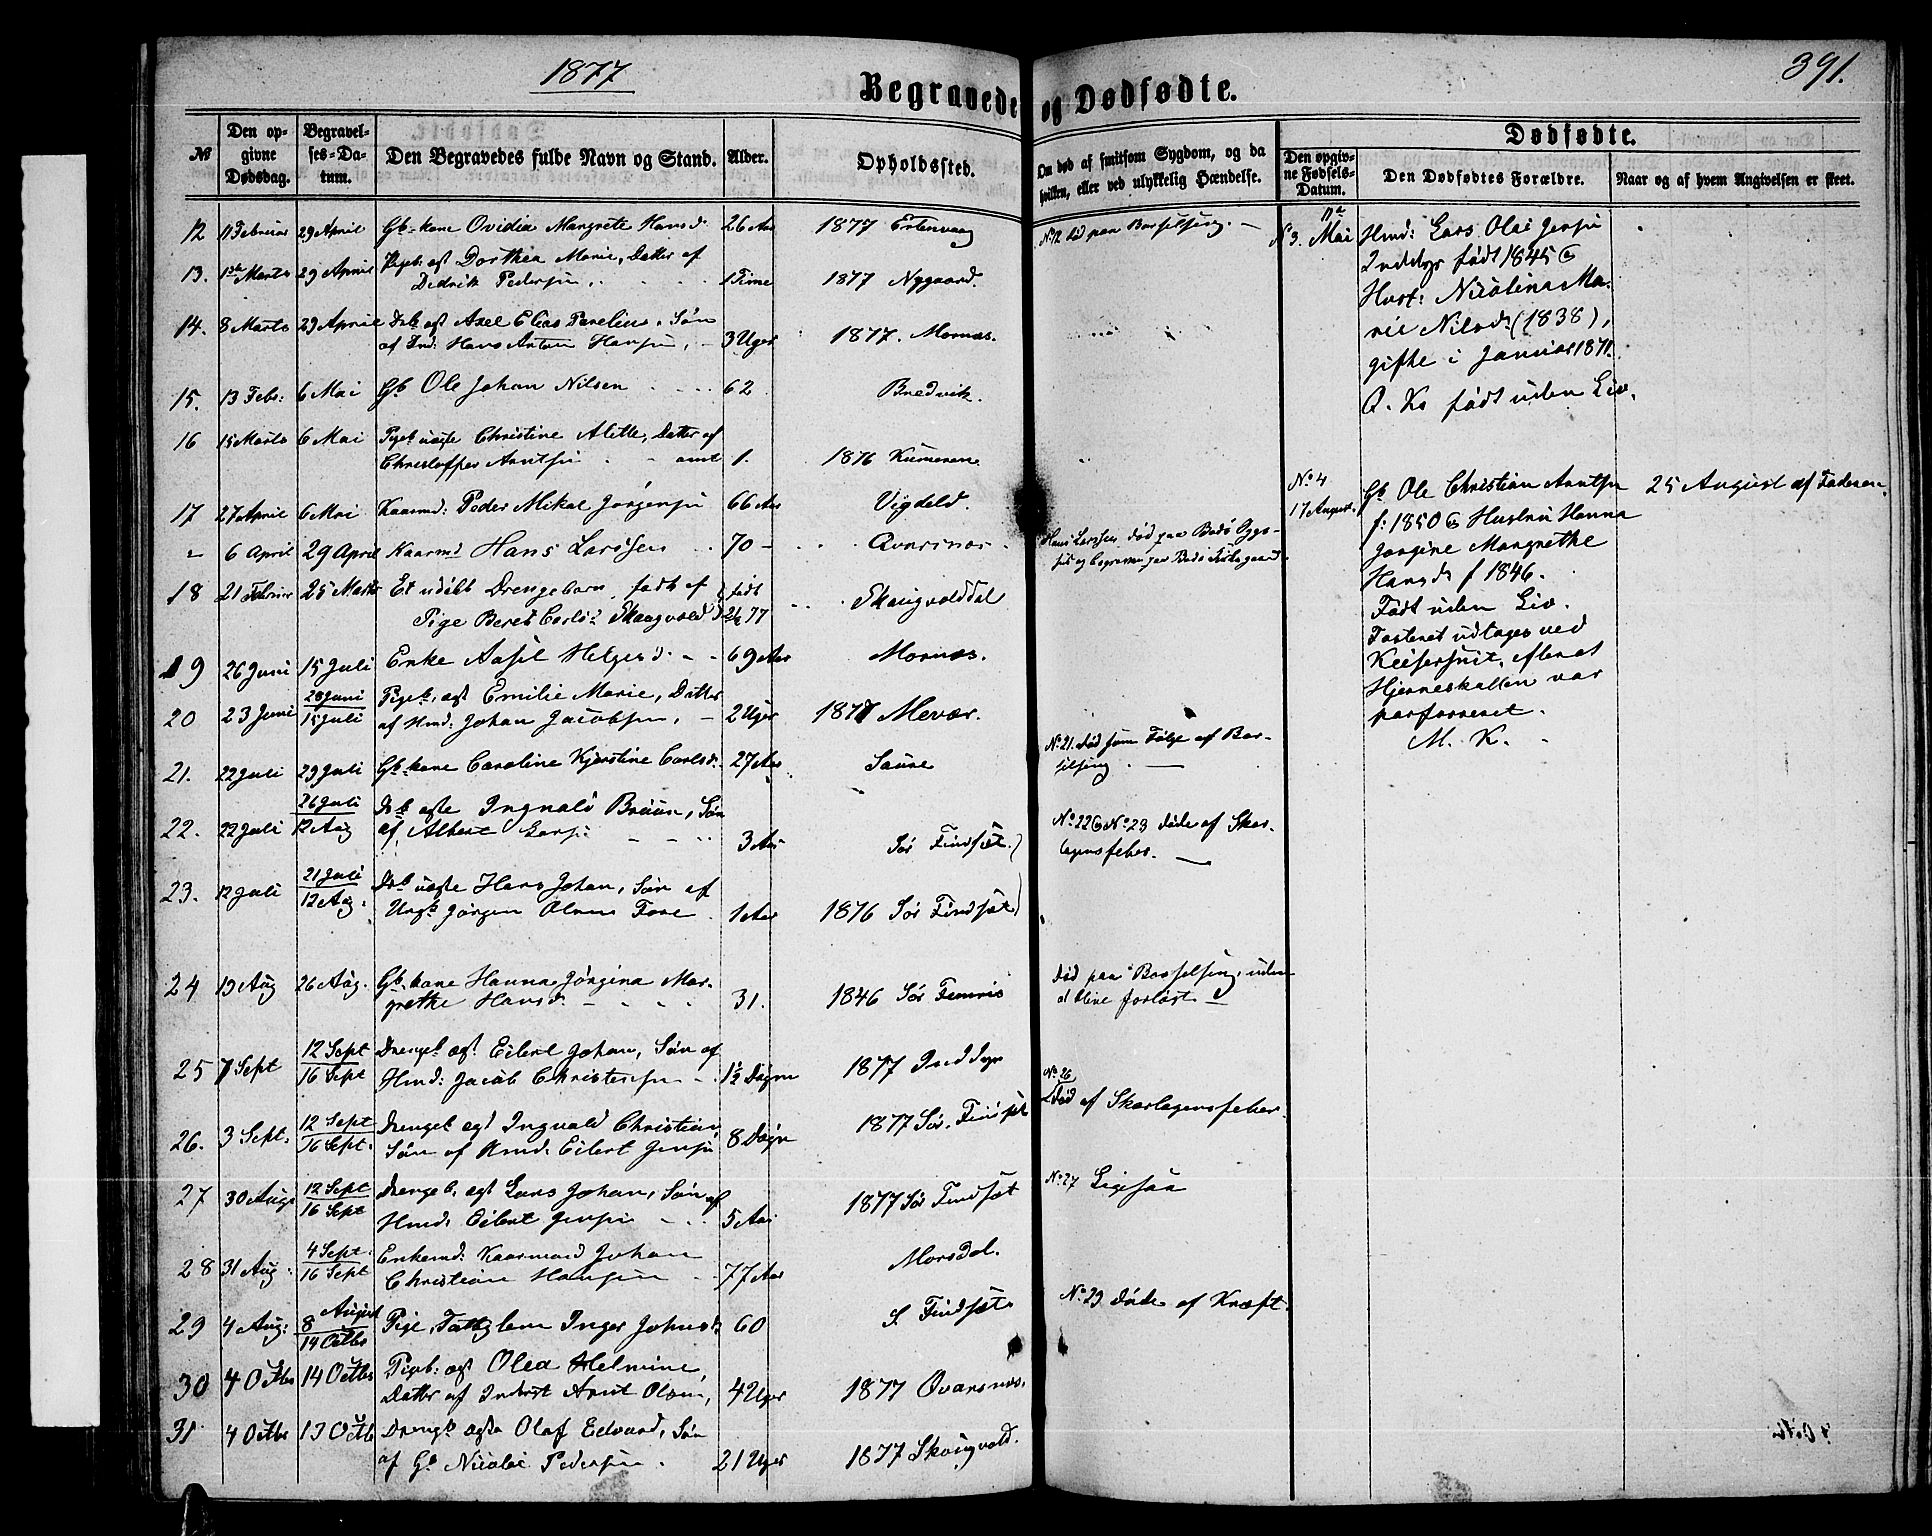 1877
391.
Begravede og Dødfødte.
Dødfødte.
№
Den op-
givne
Dødsdag.
Begravel-
ses-Da-
tum.
Den Begravedes fulde Navn og Stand.
Alder.
Opholdssted.
Om død af smitsom Sygdom, og da
hvilken, eller ved ulykkelig Hændelse.
Den opgiv-
ne Fødsels-
Datum.
Den Dødfødtes Forældre.
Naar og af hvem Angivelsen er skeet.
12 11 Februar 29 April Gb-kone Ovidia Margrete Hansd. 26 Aar 1877 Ertenvaag No 12 død paa Barselseng.
13. 1ste Marts 29 April Pigeb. ægt Dorthea Marie, Datter af
Didrik Pedersen 1 Time 1877 Nygaard.
14. 8 Marts 29 April Drb. ægt Axel Elias Parelius, Søn
af Ind: Hans Anton Hansen, 3 Uger 1877. Mornæs.
15. 13 Febr: 6 Mai Gb Ole Johan Nilsen 62 Bredvik.
16 15 Marts 6 Mai Pigeb. uægte Christine Alette, Datter af
Christoffer Arntsen 1. 1876 Kumeren
17 27 April 6 Mai Kaarmd: Peder Mikal Jørgensen 66 Aar Vigdeld.
" 6 April 29 April Kaarmd Hans Larssen 70 Qvarsnæs
Hans Larssen død paa Bodø Syge-
hus og begraven paa Bodø Kirkegaard.
18 21 Februar 25 Marts Et udøbt Drengebarn, født af
Pige Beret Carlsd Skaugvold født 77 Skaugvolddal
19 26 Juni 15 Juli Enke Aasil Helgesd. 69 Aar Mornæs.
20 23 Juni 28 Juni
15 Juli Pigeb. ægt Emilie Marie, Datter
af Hmd: Johan Jacobsen, 2 Uger 1877 Mevær.
21. 22 Juli 29 Juli Gb-kone Caroline Kjerstine Carlsd. 27 Aar Saure
No 21. Død som Følge af Bar-
selseng.
22. 22 Juli 26 Juli
12 Aug Drb ægte Ingvald Bruun, Søn
af, Albert Larsen 3 Aar Sør Findset.
No 22 & No 23 døde af Skar-
lagensfeber.
23. 12 Juli 21 Juli
12 Aug. Drb uægte Hans Johan, Søn af
Ungk. Jørgen Olsen Fore 1 Aar 1876 Sør Findset
24 19 Aug 26 Aug. Gb. kone Hanna Jørgina Mar-
grethe Hansd. 31. 1846 Sør Femris
død paa Barselseng, uden
at blive forløst.
25 7 Sept 12 Sept
16 Sept Drengeb ægt. Eilert Johan, Søn af
Hmd: Jacob Christensen 1½ Døgn 1877 Inddyr
26. 3 Sept. 12 Sept
16 Sept. Drengeb ægt Ingvald Christian,
Søn af Hmd. Eilert Jensen 8 Døgn 1877 Sør. Findset
No 26
Død af Skarlagensfeber.
27 30 Aug. 12 Sept
16 Sept Drengeb. ægt Lars Johan, Søn af
Hmd: Eilert Jensen 5 Aar 1877 Sør Findset No 27 Ligesaa
28 31 Aug. 4 Sept.
16 Sept Enkemd: Kaarmand Johan
Christian Hansen 77 Aar Morsdal.
29 4 Aug: 8 August
14 Octbr Pige, Fattiglem Inger Johnsd. 60 S. Findset No 29 døde af Kræft.
30 4 Octbr 14 Octbr Pigeb: ægt Olea Helmine,
Datter af Inderst Arnt Olsen, 4 Uger 1877 Qvarsnæs.
31 4 Octbr 13 Octb Drengb. ægte Olaf Edvard, Søn
af Gb Nicolai Pedersen. 21 Uger 1877 Skaugvold.
No 3. 11te Mai Hmd: Lars Olai Jensen
Inddyr født 1845 &
Hust: Nicolina Ma-
rie Nilsd: (1838),
gifte i Januar 1871.
Q. K. født uden Liv.
No 4
17 August. Gb Ole Christian Arntsen
f: 1850 & Hustru Hanna
Jørgine Margrethe
Hansd f 1846.
Født uden Liv.
Fosteret udtages ved
Keisersnit, efter at
Hjerneskallen var
perforeret.
M. K.
25 August af Faderen.